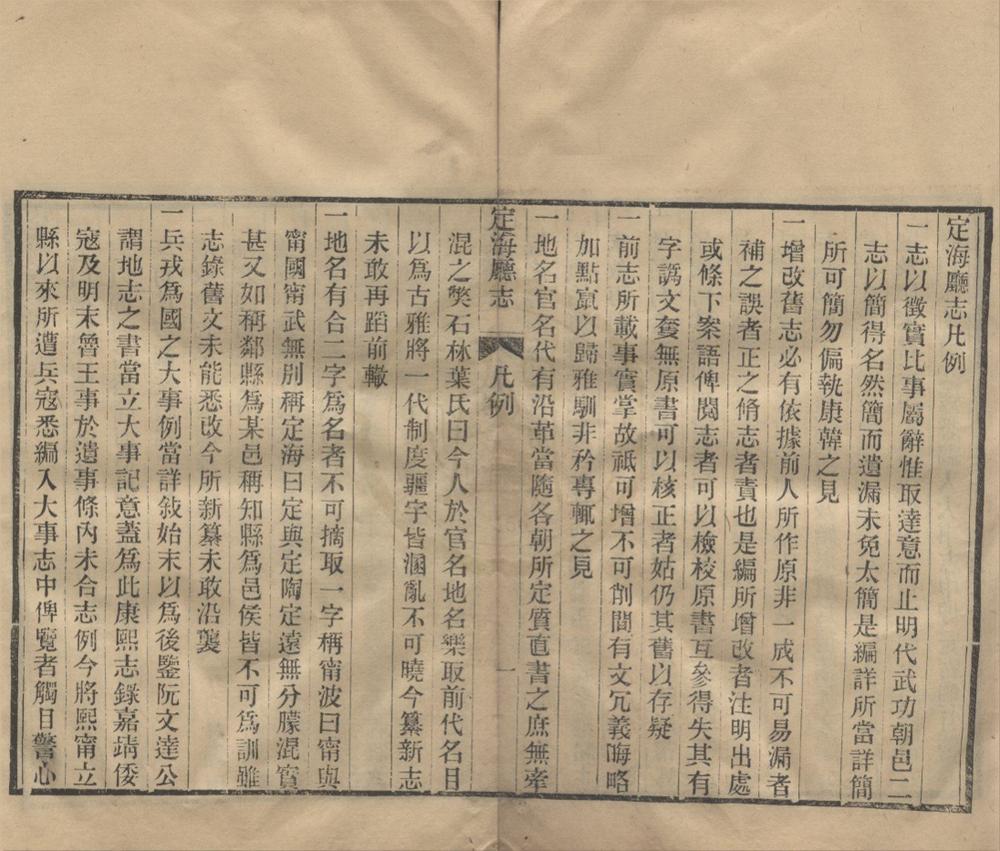 定海廳志凡例
一志以徵實比事屬辭惟取達意而止明代武功朝邑二
志以簡得名然簡而遺漏未免太簡是編詳所當詳簡
所可簡勿偏執康韓之見
一增改舊志必有依據前人所作原非一成不可易漏者
補之誤者正之脩志者責也是編所增改者注明出處
或條下案語俾閱志者可以檢校原書互參得失其有
字譌文奪無原書可以核正者姑仍其舊以存疑
一前志所載事實掌故祗可增不可削間有文冗義晦略
加點竄以歸雅馴非矜專輒之見
一地名官名代有沿革當隨各朝所定質直書之庶無牽
定海廳志
凡例
一
混之獘石林葉氏曰今人於官名地名樂取前代名目
以爲古雅將一代制度疆字皆溷亂不可曉今纂新志
未敢再蹈前轍
一地名有合二字爲名者不可摘取一字稱甯波曰甯與
甯國甯武無別稱定海曰定與定陶定遠無分朦混實
甚又如稱鄰縣爲某邑稱知縣爲邑侯皆不可爲訓雖
志錄舊文未能悉改今所新纂未敢沿襲
一兵戎爲國之大事例當詳敍始末以爲後鑒阮文達公
謂地志之書當立大事記意蓋爲此康熙志錄嘉靖倭
寇及明末魯王事於遺事條內未合志例今將熙甯立
縣以來所遭兵寇悉編入大事志中俾覽者觸目警心